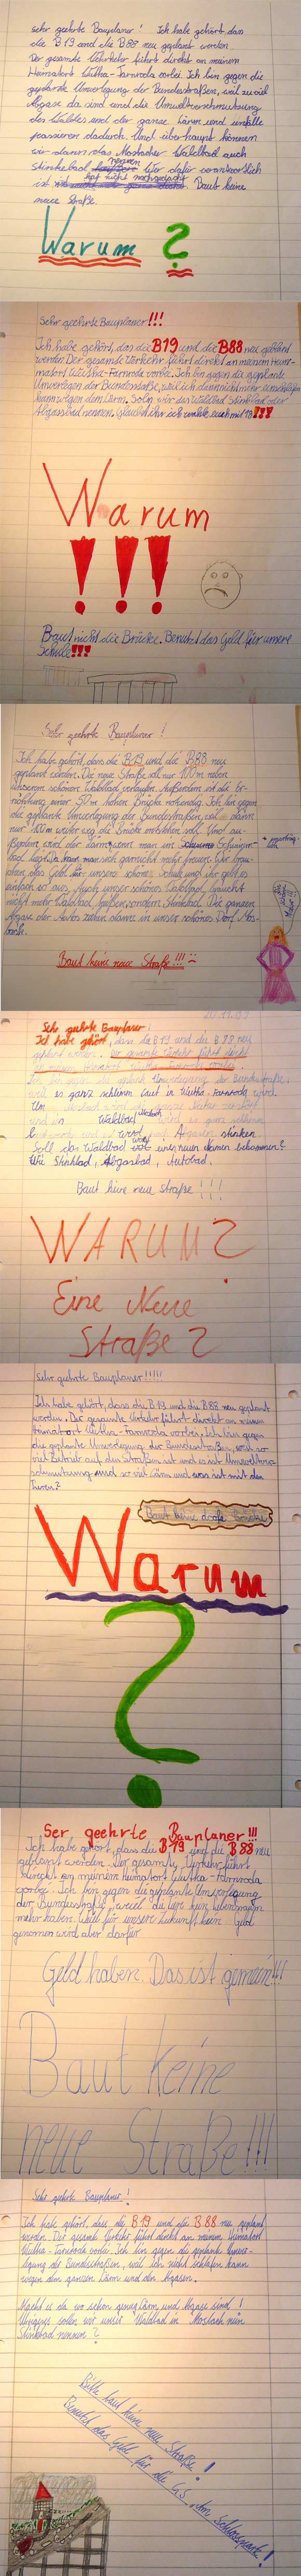 sehr geehrte Bauplaner! Ich habe gehört, das
die B19 und die B88 neu geplant werden.
Der gesamte Verkehr führt direkt an meinem
Heimatort Wutha-Farnroda vorbei. Ich bin gegen die
geplante Umverlegung der Bundesstraßen, weil zu viel
Abgase da sind und die Umweltverschmutzung
des Waldes und der ganze Lärm und Unfälle
passieren dadurch. Und überhaupt können
wir dann das Mosbacher Waldbad auch
Stinkebad nennen wer dafür verantwortlich
ist hat nicht nachgedacht. Baut keine
neue Straße.
Warum ?
Sehr geehrte Bauplaner!!!
Ich habe gehört, das die B19 und die B88 neu geplant
werden. Der gesamte Verkehr führt direkt an meinem Heim-
matort Wutha-Farnroda vorbei. Ich bin gegen die geplante
Umverlegen der Bundesstraße, weil ich dann nicht mehr einschlafen
kann wegen dem Lärm. Solln wir das Waldbad Stinkbad oder
Abgasbad nennen. Glaubt ihr ich
Warum
!!!
Baut nicht die Brücke. Benutzt das Geld für unsere
Schule!!!
Sehr geehrte Bauplaner!
Ich habe gehört, dass die B19 und die B88 neu
geplant werden. Die neue Straße soll nur 100m neben
unserem schönen Waldbad verlaufen. Außerdem ist die Er-
richtung einer 50m hohen Brücke notwendig. Ich bin gegen
die geplante Umverlegung der Bundesstraßen, weil
nur 100m weiter weg die Brücke entstehen soll. Und au-
ßerdem wird der dann, wenn man im Schwimm-
bad liegt. Da kann man sich garnicht mehr freuen. Wir brau-
chen das Geld für unsere schöne Schule und ihr gebt es
einfach so aus. Auch unser schönes Waldbad braucht
nicht mehr Waldbad heißen sondern Stinkbad. Die ganzen
Abgase der Autos ziehen dann in unser schönes Dorf Mos-
bach.
Baut keine neue Straße!!!
Sehr geehrte Bauplaner!
Ich habe gehört, dass die B19 und die B88 neu
geplant werden. Der gesamte Verkehr führt direkt
an meinem Heimatort Wutha-Farnroda vorbei.
Ich bin gegen die geplante Umverlegung der Bundesstraße,
weil es ganz schlimm laut in Wutha-Farnroda wird.
Um
und im Waldbad Mosbach wird es ganz schlimm
wird Abgasen stinken
Soll das Waldbad wohl neuen Namen bekommen?
Wie Stinkbad, Abgasbad, Autobad.
Baut keine neue Straße !!!
WARUM?
Eine Neue
Straße?
Sehr geehrte Bauplaner!!!!
Ich habe gehört, dass die B19 und die B88 neu geplant
werden. Der gesamte Verkehr führt direkt an meinem
Heimatort Wutha-Farnroda vorbei. Ich bin gegen
die geplante Umverlegung der Bundesstraßen, weil so
viel Betrieb auf den Straßen ist und es mit Umweltver-
schmutzung und so viel Lärm und was ist mit den
Tieren?
Baut keine große Brücke
Warum
?
Ser geehrte Bauplaner!!!
Ich habe gehört, dass die B19 und die B88 neu
geplant werden. Der gesamte Verkehr führt
direkt an meinem Heimatort Wutha-Farnroda
vorbei. Ich bin gegen die geplante Umverlegung
der Bundesstraße, weil die Tiere kein Lebensraum
mehr haben. Weil für unsere Zukunft, kein Geld
genomen wird aber dafür
Geld haben. Das ist gemein!!!
Baut keine
neue Straße!!!
Sehr geehrte Bauplaner!
Ich habe gehört, dass die B19 und die B88 neu geplant
werden. Der gesamte Verkehr führt direkt an meinem Heimatort
Wutha-Farnroda vorbei. Ich bin gegen die geplante Umver-
legung der Bundesstraßen, weil ich nicht schlafen kann
wegen dem ganzen Lärm und den Abgasen.
Macht es da wo schon genug Lärm und Abgase sind!
Übrigens sollen wir unser Waldbad in Mosbach nun
Stinkbad nennen?
Bitte baut keine neue Straße!
Benutzt das Geld für die GS „Am Schlosspark"!